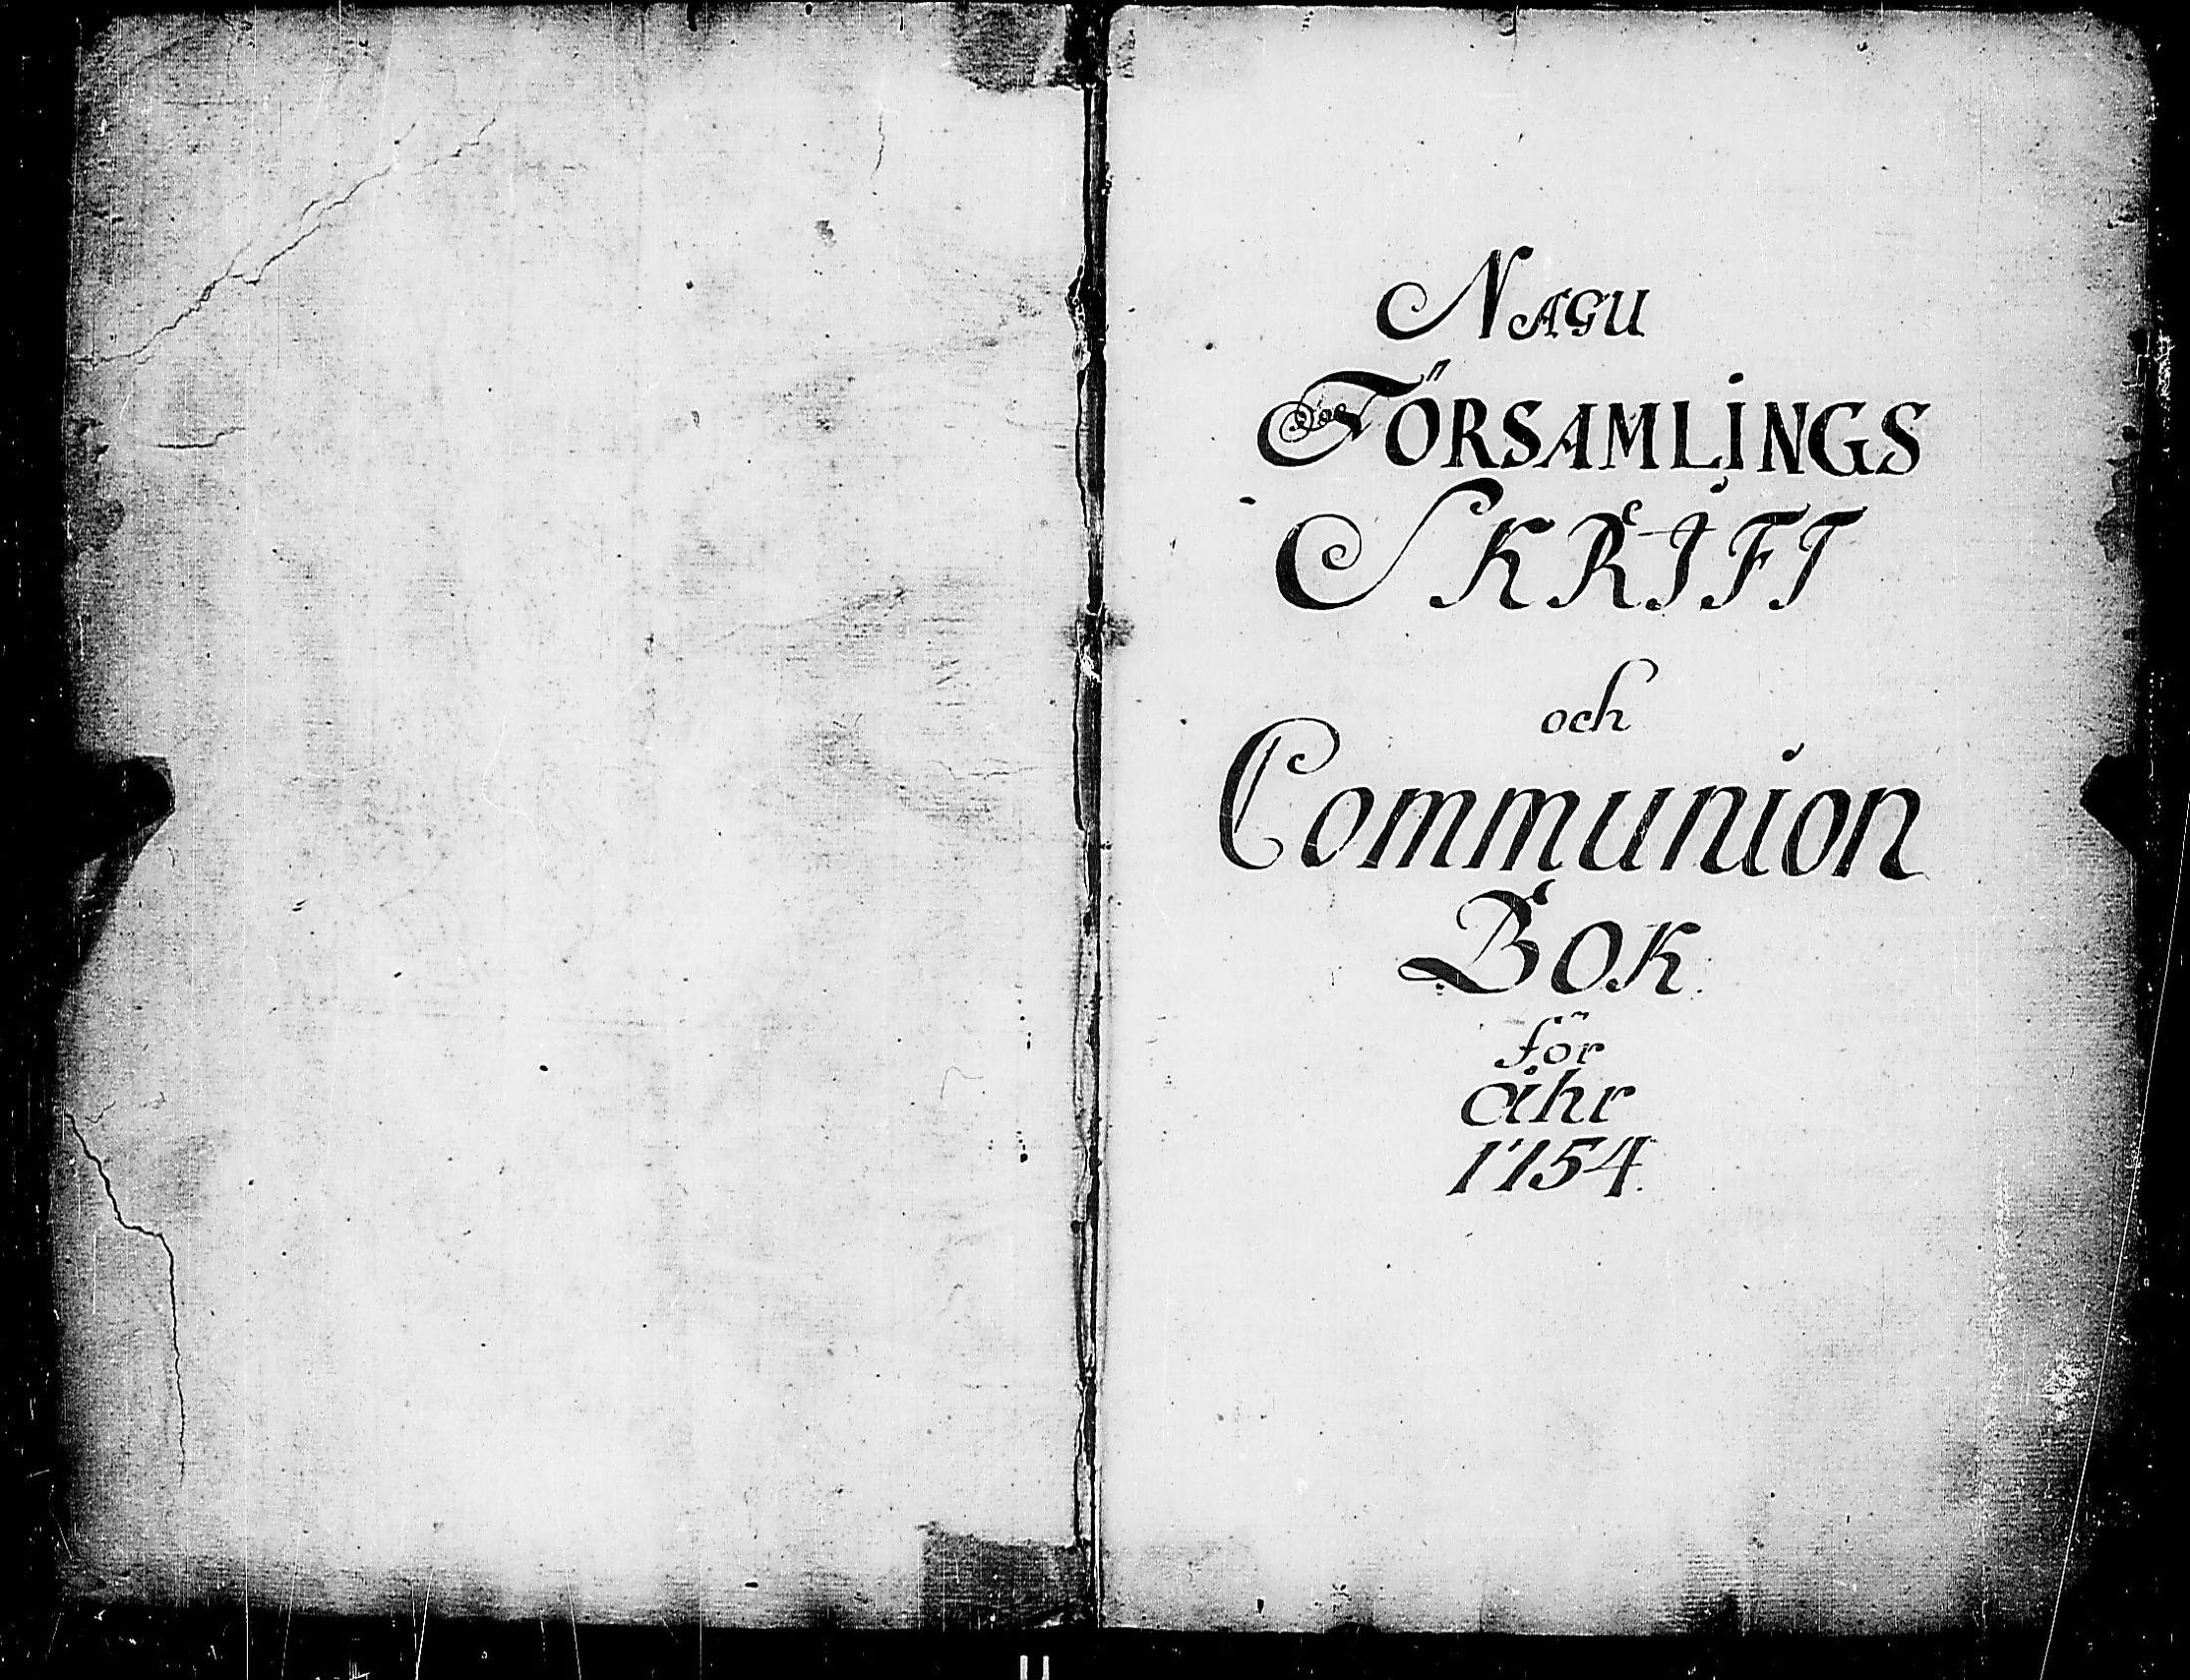 NAGU
FÖRSAMLINGS
SKRIFT
och
Communion
BOK
för
åhr
1754.